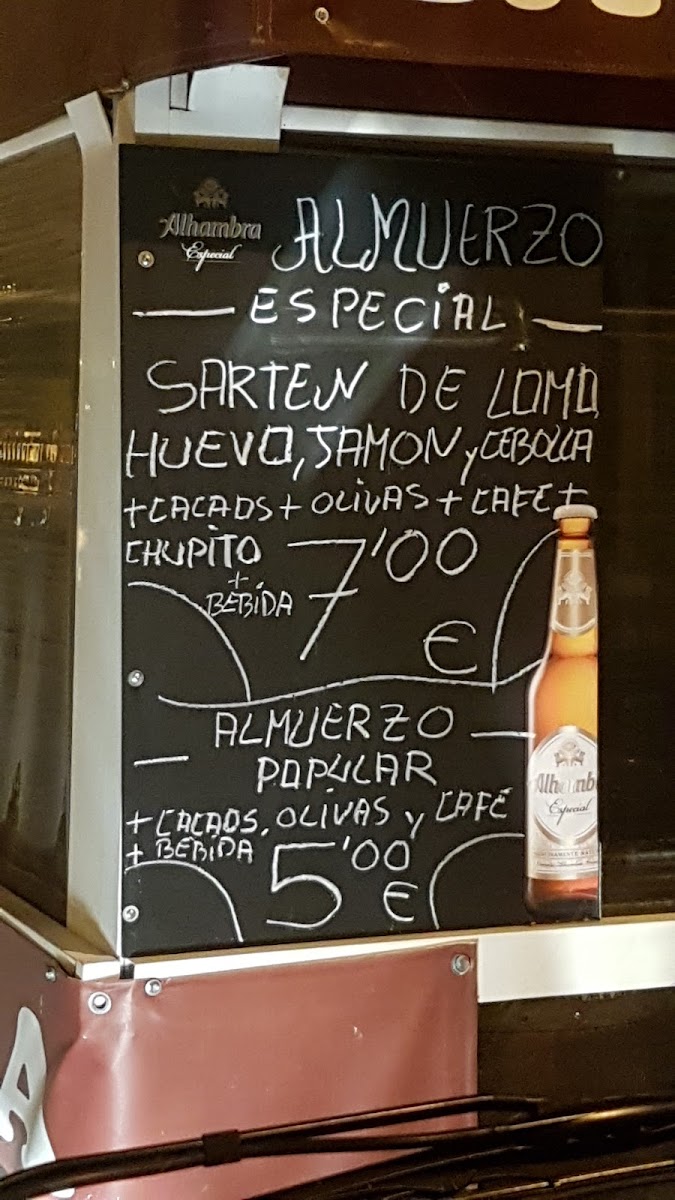 Alhambra
Especial
ALMUERZO
ESPECIAL
SARTEN DE LOMO,
HUEVO, JAMON y CEBOLLA
+ CACAOS + OLIVAS + CAFE +
CHUPITO 7'00
+
BEBIDA
€
ALMUERZO
POPULAR
+ CACAOS, OLIVAS y CAFÉ
+ BEBIDA 5'00
€
Alhambra
Especial